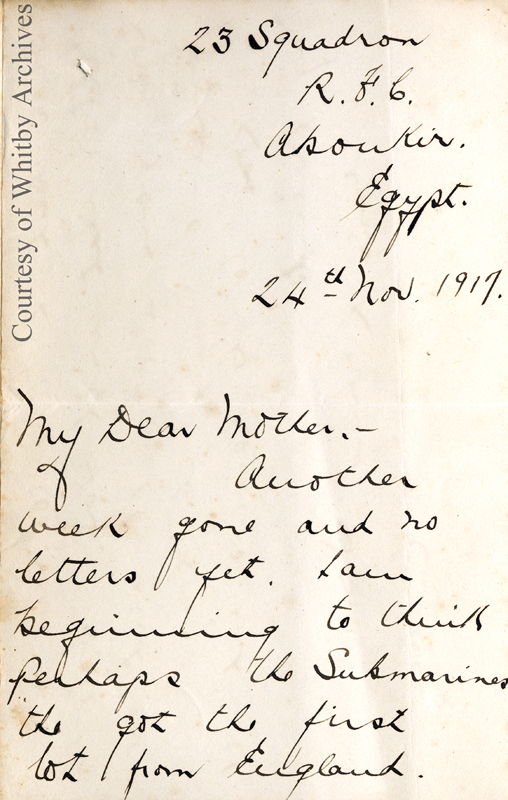 Courtesy of Whitby Archives
23 Squadron
R. F. C.
Aboukir.
Egypt.
24th Nov. 1917.
My Dear Mother,—
Another
week gone and no
letters yet. I am
beginning to think
perhaps the Submarines
the got the first
lot from England.